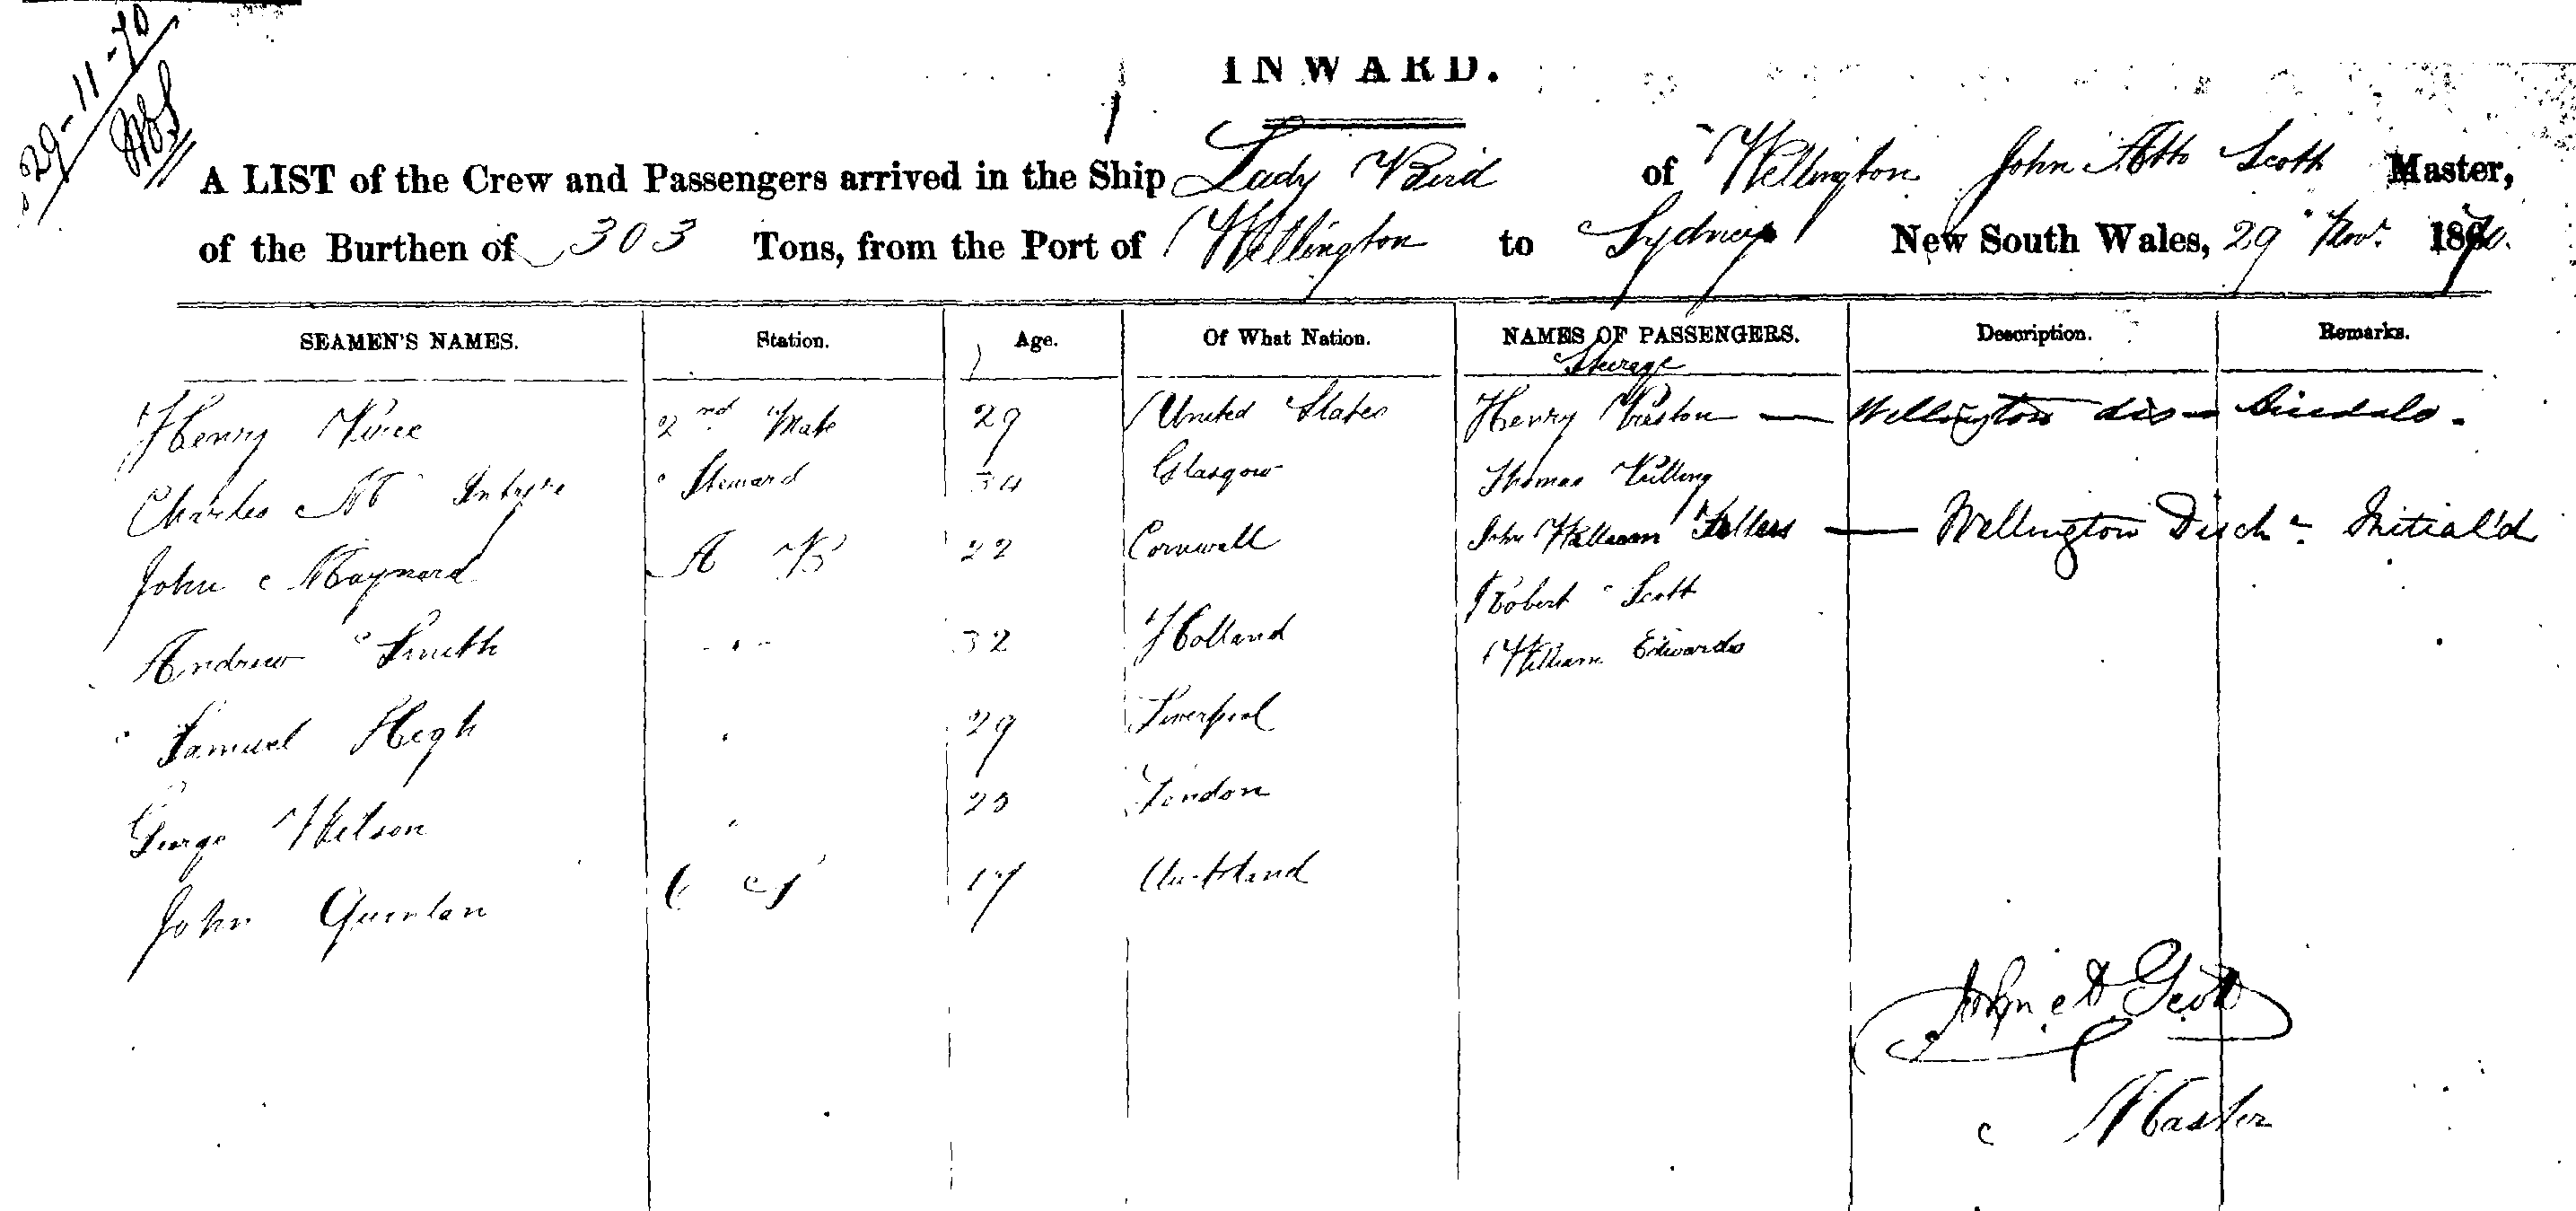 29-11-70
INWARD.
A LIST of the Crew and Passengers arrived in the Ship Lady Bird of Wellington John Scott Master,
of the Burthen of 303 Tons, from the Port of Wellington to Sydney New South Wales, 29 Nov. 1870.
SEAMEN'S NAMES. Station. Age. Of What Nation. NAMES OF PASSENGERS. Description. Remarks.
Steerage
Henry 2nd Mate 29 United States Henry Preston — Wellington dis
Charles Mc Intyre Steward 34 Glasgow Thomas Pilling
John Maynard A B 22 Cornwall John William — Wellington Disch Initial'd
Andrew Smith " 32 Holland Robert Scott
William Edwards
Samuel Hegh " 29 Liverpool
George Wilson " London
John Quinlan 17 Auckland
John A Scott
Master